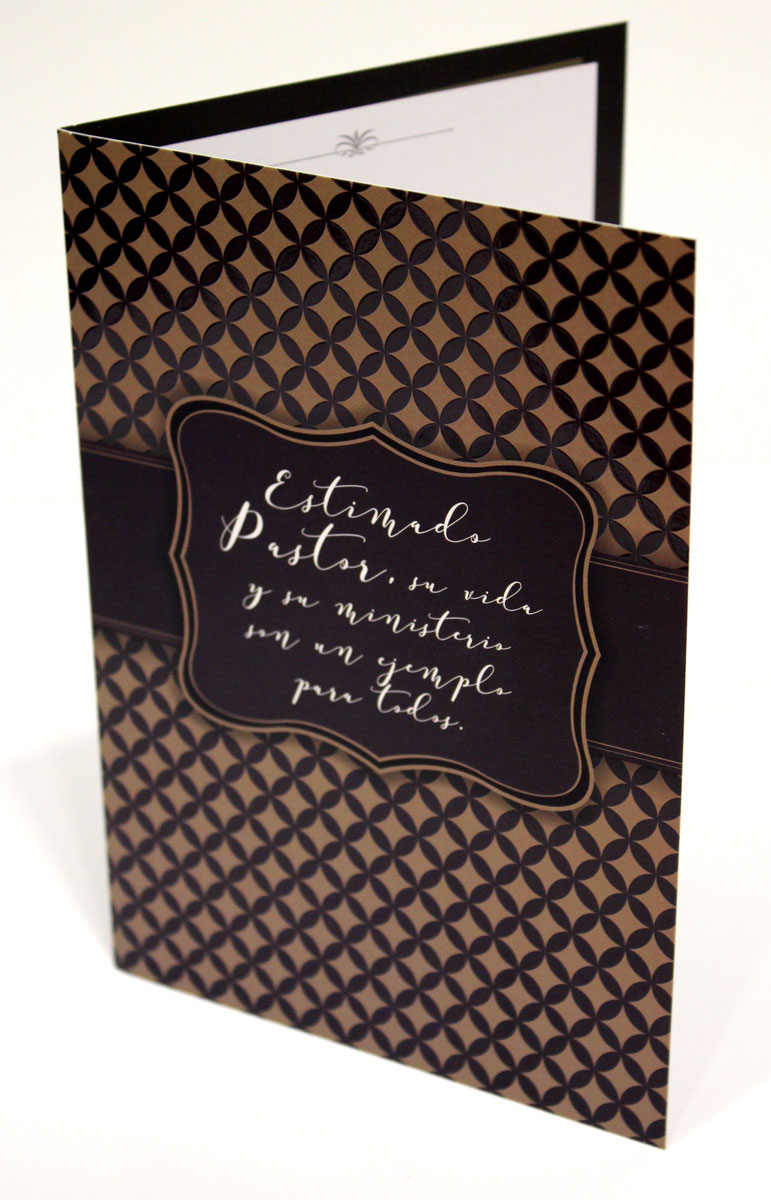 Estimado
Pastor, su vida
y su ministerio
son un ejemplo
para todos.